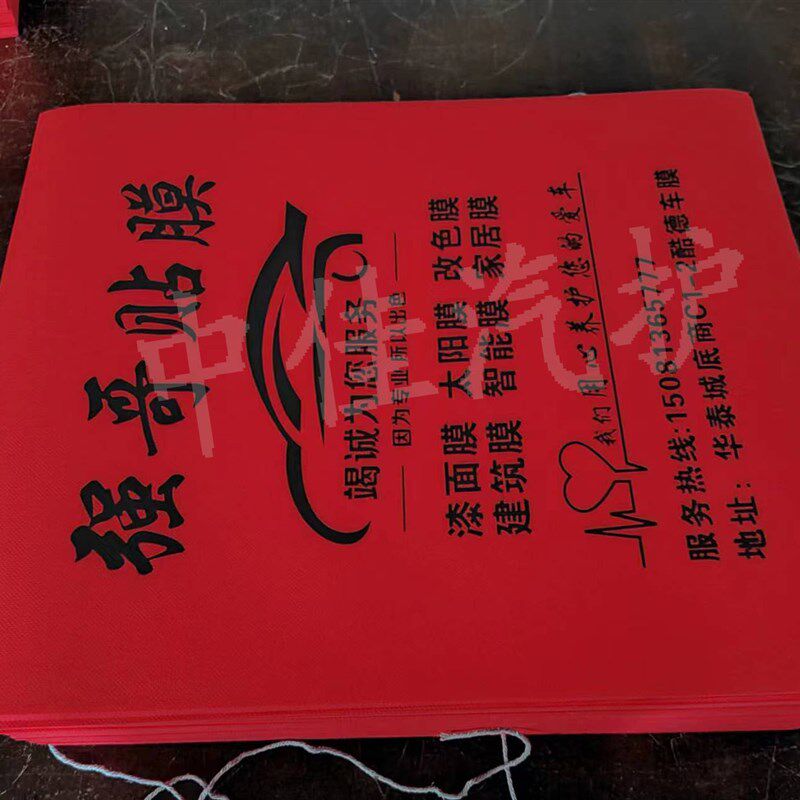 强哥贴膜
竭诚为您服务
因为专业 所以出色
漆面膜 太阳膜 改色膜
建筑膜 智能膜 家居膜
我们用心养护您的爱车
服务热线:15081365777
地址: 华泰城底商C1-2酷德车膜
中佳汽护